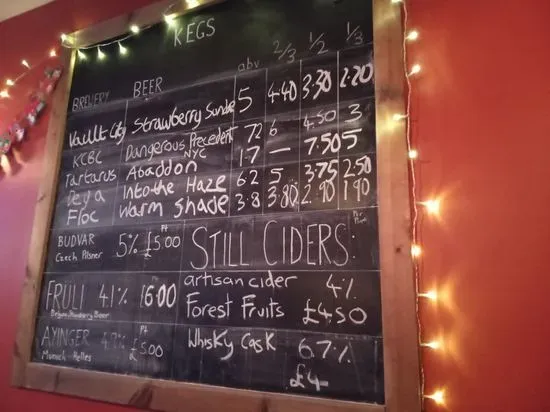 KEGS
BREWERY BEER abv 2/3 1/2 1/3
Vault City Strawberry Sundae 5 4.40 3.30 2.20
KCBC Dangerous Precedent 72 6 4.50 3
NYC
Tartarus Abaddon 1.7 — 7.50 5
Deya Into the Haze 62 5 3.75 2.50
Floc Warm Shade 3.8 3.80 2.90 1.90
BUDVAR 5% £5.00
Czech Pilsner
STILL CIDERS:
FRULI 41% £6.00
artisan cider 4%
Forest Fruits £4.50
AYINGER £5.00
Munich Helles
Whisky Cask 6.7%
£4-